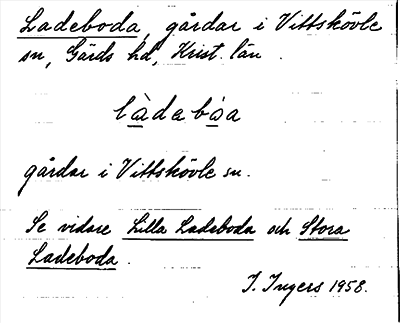 Ladeboda, gårdar i Vittskövle
sn, Gärds hd, Krist. län.
làdebòa
gårdar i Vittskövle sn.
Se vidare Lilla Ladeboda och Stora
Ladeboda.
I. Ingers 1958.